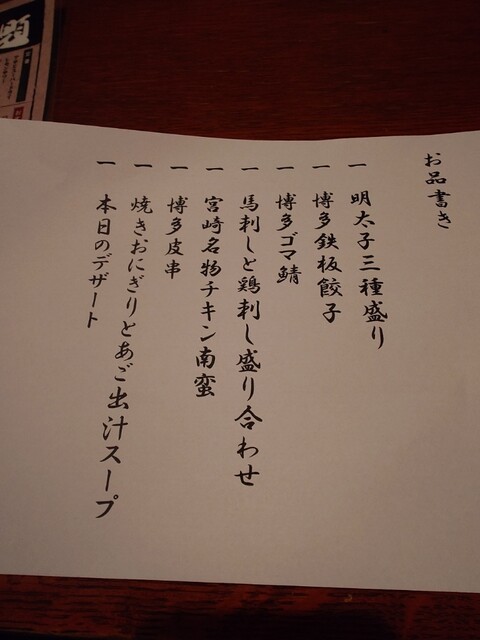 お品書き
一 明太子三種盛り
一 博多鉄板餃子
一 博多ゴマ鯖
一 馬刺しと鶏刺し盛り合わせ
一 宮崎名物チキン南蛮
一 博多皮串
一 焼きおにぎりとあご出汁スープ
一 本日のデザート